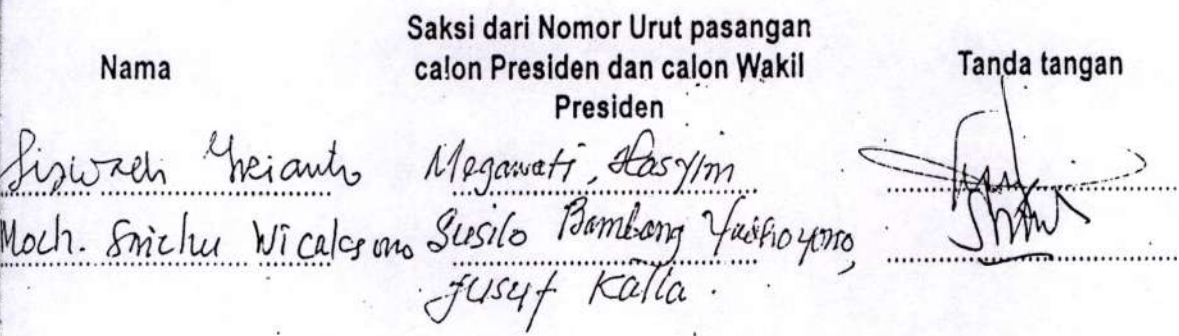 Nama
Saksi dari Nomor Urut pasangan
calon Presiden dan calon Wakil
Presiden
Tanda tangan
Megawati, Hasyim
Moch. Wicaksono Susilo Bambang Yudhoyono,
Jusuf Kalla.